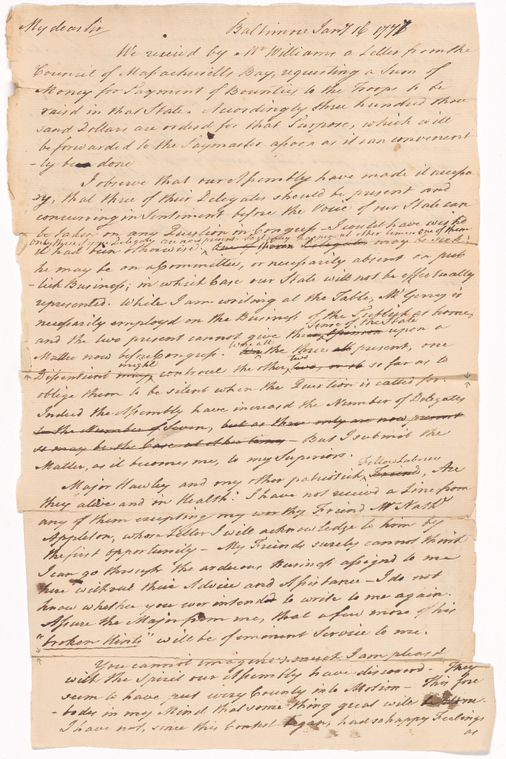 My dear Sir Baltimore Jany 16 1777
We receivd by Mr Williams a Letter from the
Council of Massachusetts Bay, requesting a Sum of
Money for Payment of Bounties to the Troops to be
raisd in that State. Accordingly three hundred thou
sand Dollars are orderd for that Purpose, which will
be forwarded to the Paymaster as soon as it can convenient
-ly be done
I observe that our Assembly have made it necessa
ry, that three of their Delegates should be present and
concurring in Sentiment before the Voice of our State can
be taken on any Question in Congress. I could have wishd
it had been otherwise.
only three of your Delegates are now present. So it may happen at other times. One of them
may be sick;
he may be on a Committee, or necessarily absent on pub
-lick Business; in which Case our State will not be effectually
represented. While I am writing at the Table, Mr Gerry is
necessarily employd on the Business of the Publick at home,
and the two present cannot give the Sense of the State upon a
Matter now before Congress. While all the three are present, one
Dissentient might controul the other two so far as to
oblige them to be silent when the Question is called for.
Indeed the Assembly have increasd the Number of Delegates
to the Number of Seven, but as three only are now present
so may be the Case at other times - But I submit the
Matter, as it becomes me, to my Superiors.
Major Hawley and my other patriotick Fellow Laborers, Are
they alive and in Health? I have not receivd a Line from
any of them excepting my worthy Friend Mr Nathl
Appleton, whose Letter I will acknowledge to him by
the first opportunity - My Friends surely cannot think
I can go through the arduous Business assignd to me
here without their Advice and Assistance - I do not
know whether you ever intended to write to me again.
Assure the Major from me, that a few more of his
"broken Hints" will be of eminent Service to me.
You cannot imagine how much I am pleasd
with the Spirit our Assembly have discoverd. They
seem to have put every County into Motion - This fore
-bodes in my Mind that something great will
I have not, since this Contest began, had so happy Feelings
as